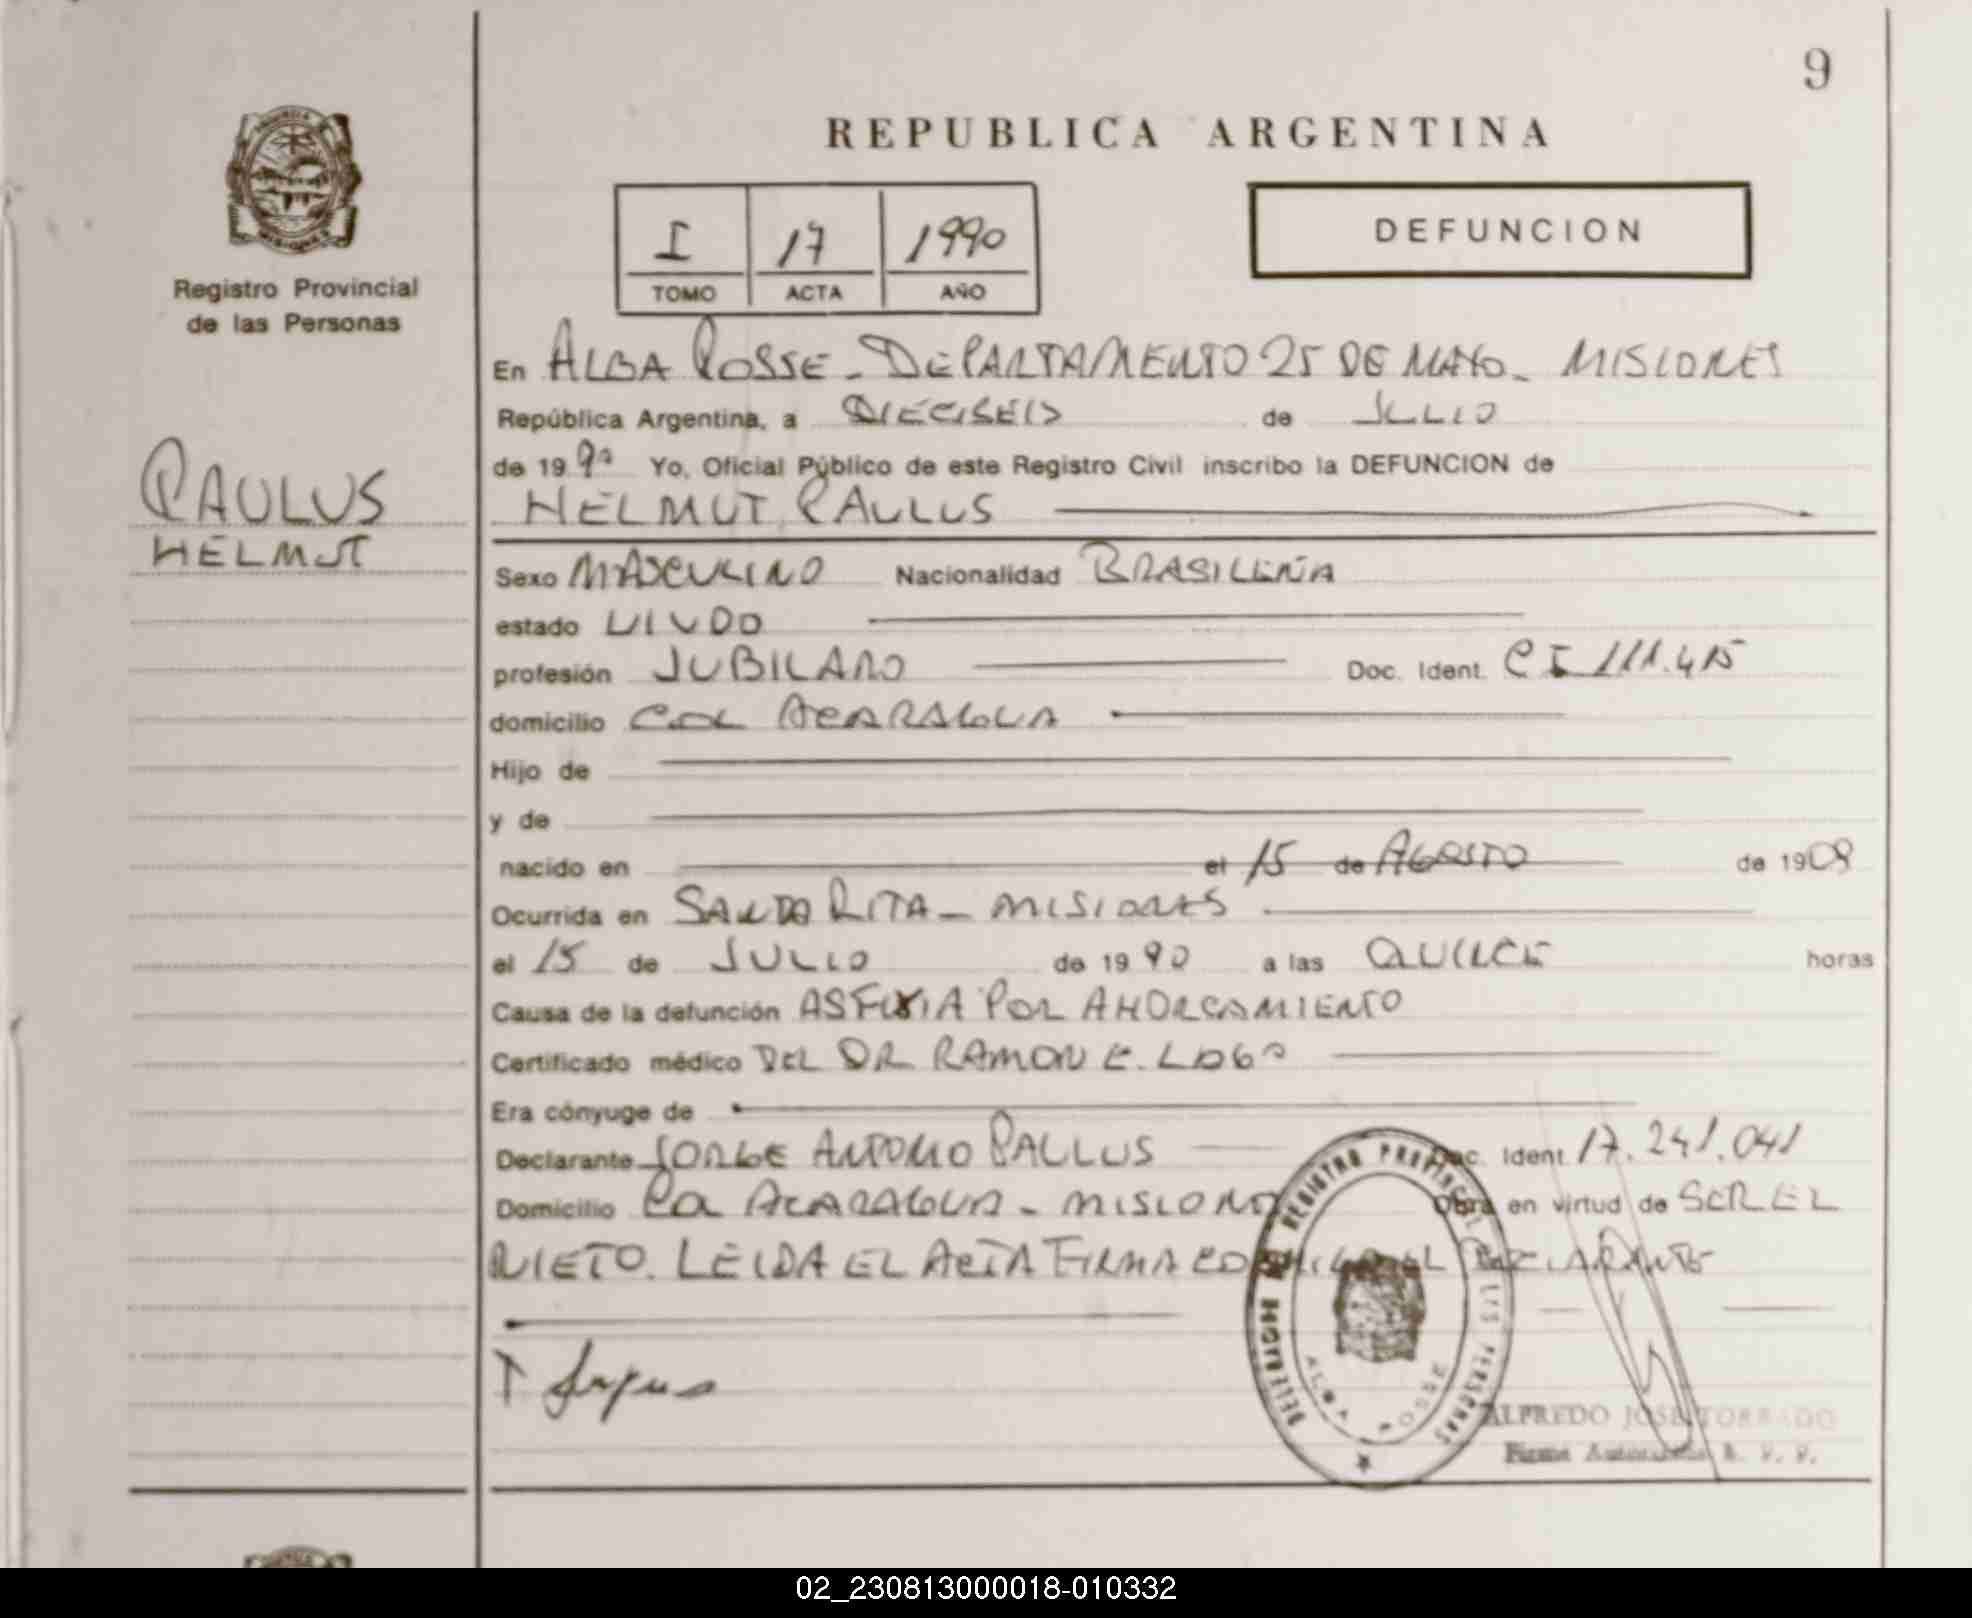 9
REPUBLICA ARGENTINA
I 17 1990
TOMO ACTA AÑO
DEFUNCION
Registro Provincial
de las Personas
PAULUS
HELMUT
En ALBA POSSE - DEPARTAMENTO 25 DE MAYO - MISIONES
República Argentina, a DIECISEIS de JULIO
de 1990 Yo, Oficial Público de este Registro Civil inscribo la DEFUNCION de
HELMUT PAULUS
Sexo MASCULINO Nacionalidad BRASILEÑA
estado VIUDO
profesión JUBILADO Doc. Ident. CI 111.415
domicilio COL ACARAGUA
Hijo de
y de
nacido en el 15 de AGOSTO de 1908
Ocurrida en SANTA RITA - MISIONES
el 15 de JULIO de 1990 a las QUINCE horas
Causa de la defunción ASFIXIA POR AHORCAMIENTO
Certificado médico DEL DR RAMON E. LOGO
Era cónyuge de
Declarante JORGE ANTONIO PAULUS Doc. Ident. 17.241.041
Domicilio COL ACARAGUA - MISIONES Obra en virtud de SER EL
NIETO. LEIDA EL ACTA FIRMA CONMIGO EL DECLARANTE
DELEGACION REGISTRO PROVINCIAL DE LAS PERSONAS
ALBA POSSE
ALFREDO JOSE TORRADO
Firma Autorizada
02_230813000018-010332